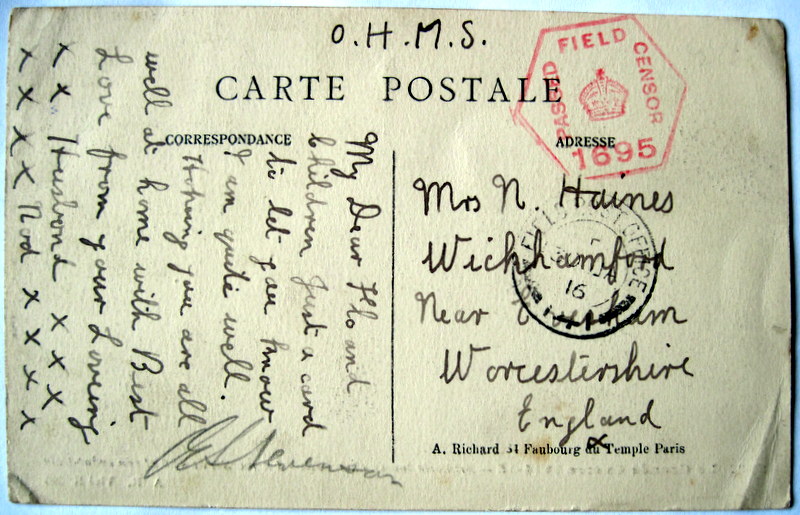 O.H.M.S.
PASSED FIELD CENSOR
1695
CARTE POSTALE
CORRESPONDANCE
ADRESSE
My Dear Flo and
children Just a card
to let you know
I am quite well.
Hoping you are all
well at home with Best
Love from your Loveing
x x Husbond x x x
x x x x Nod x x x x
Mrs N. Haines
Wickhamford
Near Evesham
Worcestershire
England
FIELD POST OFFICE
16
A. Richard 54 Faubourg du Temple Paris